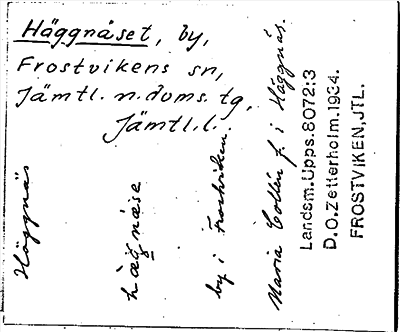 Häggnåset, by,
Frostvikens sn,
Jämtl. n. doms. tg,
Jämtl. l.
Häggnäs
häggnåse
by i Frostviken.
Maria Collén f. i Häggnäs.
Landsm.Upps.8072:3
D.O.Zetterholm.1934.
FROSTVIKEN,JTL.